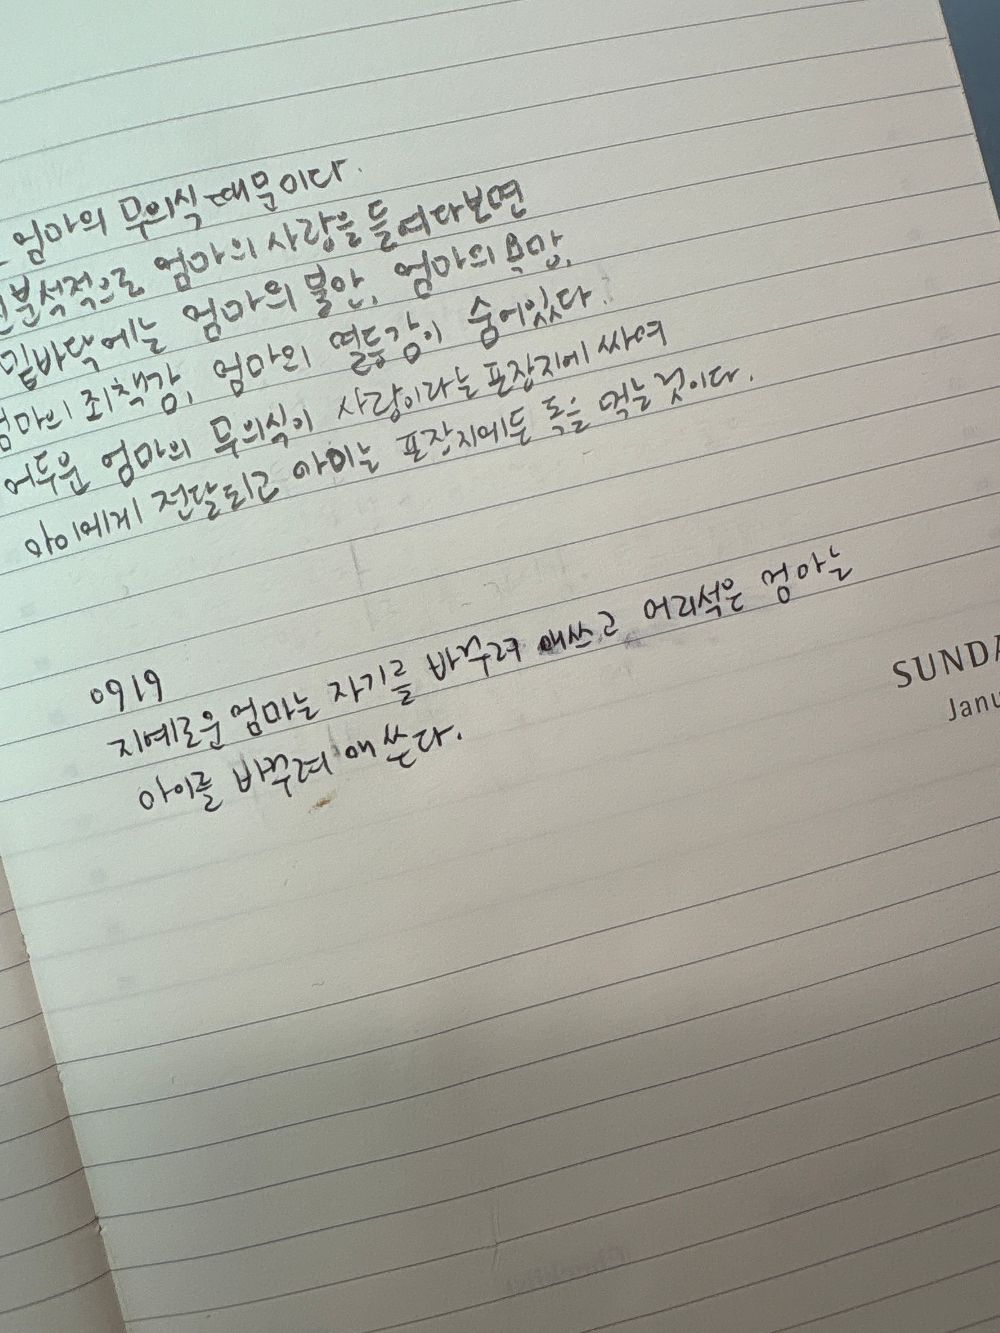 엄마의 무의식 때문이다.
분석적으로 엄마의 사랑을 들여다보면
밑바닥에는 엄마의 불안, 엄마의 욕망,
엄마의 죄책감, 엄마의 열등감이 숨어있다.
어두운 엄마의 무의식이 사랑이라는 포장지에 싸여
아이에게 전달되고 아이는 포장지에 든 독을 먹는 것이다.
0919
지혜로운 엄마는 자기를 바꾸려 애쓰고 어리석은 엄마는
아이를 바꾸려 애쓴다.
SUNDA
Janu